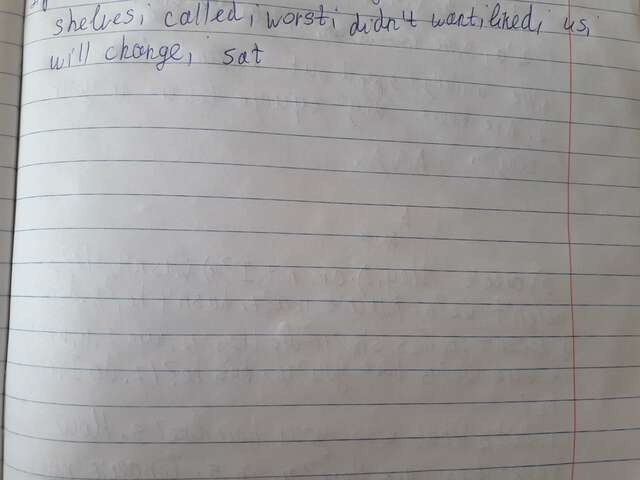 shelves; called; worst; didn't want; lined; us;
will change; sat